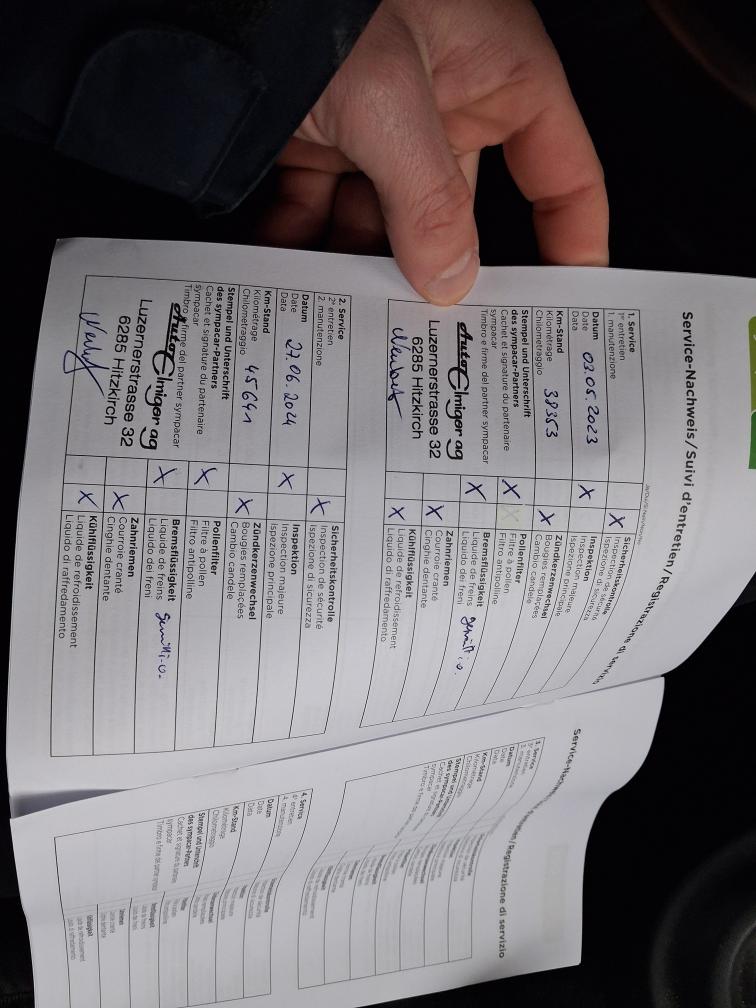 Service-Nachweis/Suivi d'entretien/Registrazione di servizio
1. Service
1er entretien
1. manutenzione
Datum
Date
Data
03.05.2023
Km-Stand
Kilométrage
Chilometraggio
38353
Stempel und Unterschrift
des sympacar-Partners
Cachet et signature du partenaire
sympacar
Timbro e firma del partner sympacar
Auto Elmiger ag
Luzernerstrasse 32
6285 Hitzkirch
X Sicherheitskontrolle
Inspection de sécurité
Ispezione di sicurezza
X Inspektion
Inspection majeure
Ispezione principale
X Zündkerzenwechsel
Bougies remplacées
Cambio candele
X Pollenfilter
Filtre à pollen
Filtro antipolline
X Bremsflüssigkeit
Liquide de freins
Liquido dei freni
X Zahnriemen
Courroie cranté
Cinghie dentante
X Kühlflüssigkeit
Liquide de refroidissement
Liquido di raffredamento
2. Service
2e entretien
2. manutenzione
Datum
Date
Data
27.06.2024
Km-Stand
Kilométrage
Chilometraggio
45641
Stempel und Unterschrift
des sympacar-Partners
Cachet et signature du partenaire
sympacar
Timbro e firma del partner sympacar
Auto Elmiger ag
Luzernerstrasse 32
6285 Hitzkirch
X Sicherheitskontrolle
Inspection de sécurité
Ispezione di sicurezza
X Inspektion
Inspection majeure
Ispezione principale
X Zündkerzenwechsel
Bougies remplacées
Cambio candele
X Pollenfilter
Filtre à pollen
Filtro antipolline
X Bremsflüssigkeit
Liquide de freins
Liquido dei freni
X Zahnriemen
Courroie cranté
Cinghie dentante
X Kühlflüssigkeit
Liquide de refroidissement
Liquido di raffredamento
3. Service
3e entretien
3. manutenzione
Datum
Date
Data
Km-Stand
Kilométrage
Chilometraggio
4. Service
4e entretien
4. manutenzione
Datum
Date
Data
Km-Stand
Kilométrage
Chilometraggio
Stempel und Unterschrift
des sympacar-Partners
Cachet et signature du partenaire
sympacar
Timbro e firma del partner sympacar